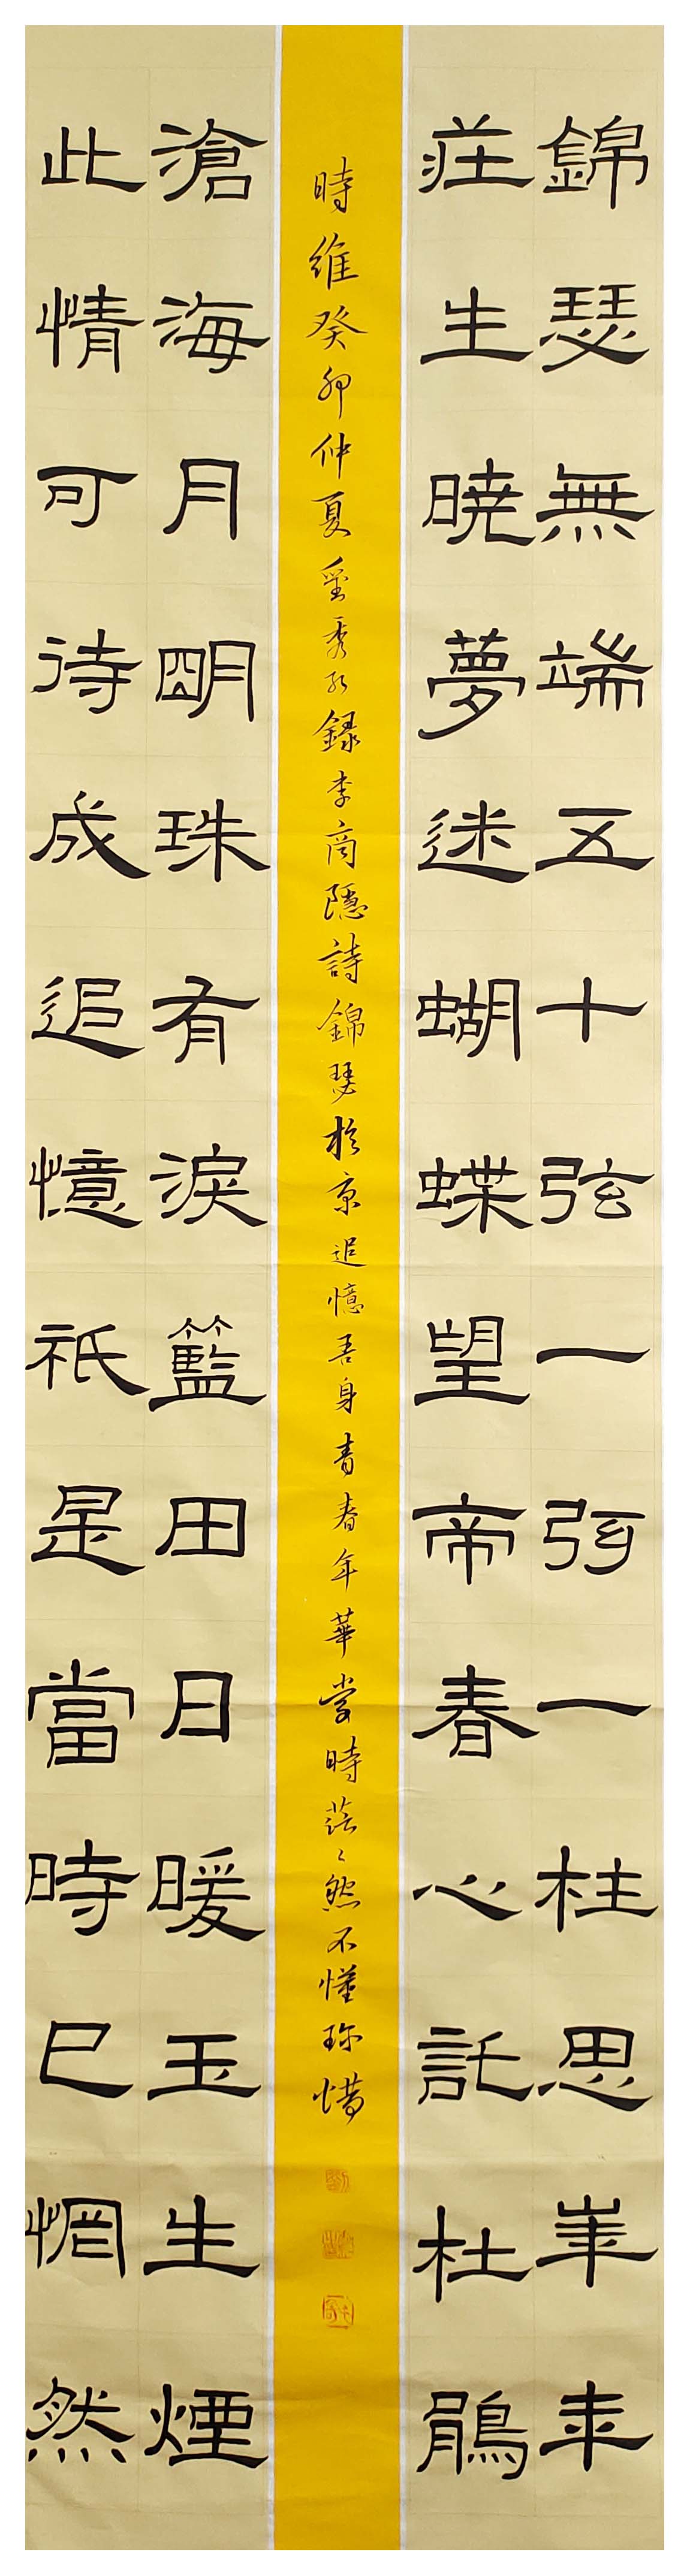 錦瑟無端五十弦一弦一柱思華年
莊生曉夢迷蝴蝶望帝春心託杜鵑
時維癸卯仲夏秀錄李商隱詩錦瑟於京追憶吾身青春年華當時茫々然不懂珍惜
滄海月明珠有淚籃田日暖玉生煙
此情可待成追憶祇是當時已惘然